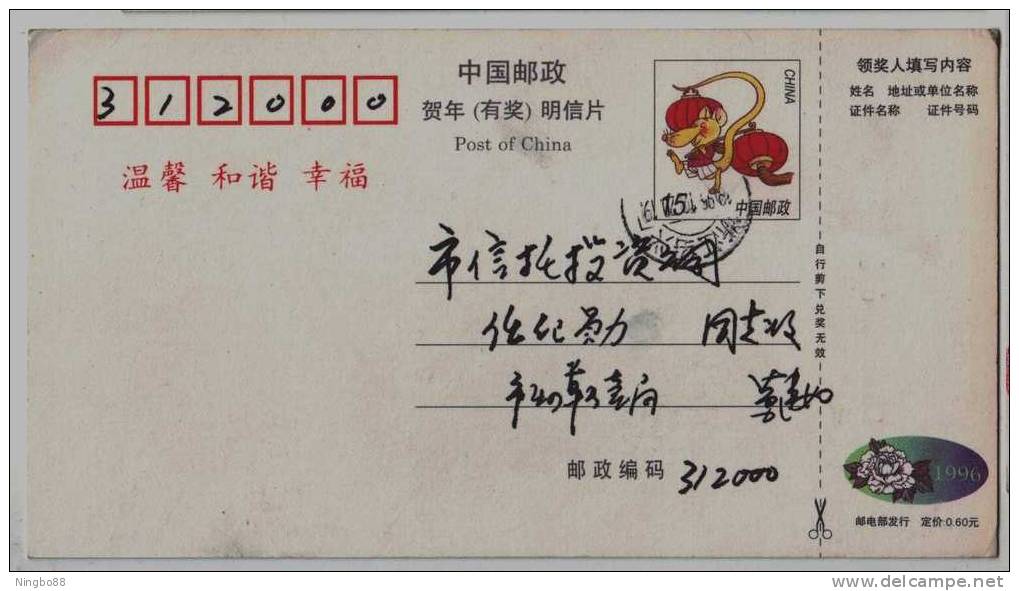 312000
中国邮政
贺年(有奖)明信片
Post of China
温馨 和谐 幸福
CHINA
中国邮政
15
市信托投资公司
任纪勋 同志收
邮政编码 312000
自行剪下兑奖无效
领奖人填写内容
姓名 地址或单位名称
证件名称 证件号码
1996
邮电部发行 定价:0.60元
Ningbo88
www.delcampe.net